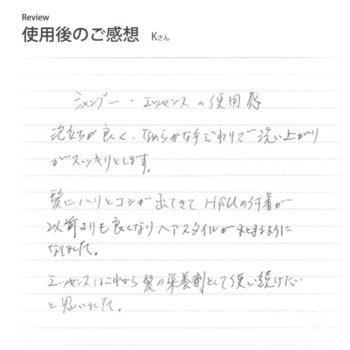 Review
使用後のご感想 Kさん
シャンプー・エッセンスの使用感
泡立ちが良く、なめらかな手ざわりで洗い上がり
がスッキリとします。
髪にハリとコシが出てきて の付着が
以前よりも良くなりヘアスタイルがまとまるように
なりました。
エッセンスはこれから髪の栄養剤として使い続けたい
と思いました。